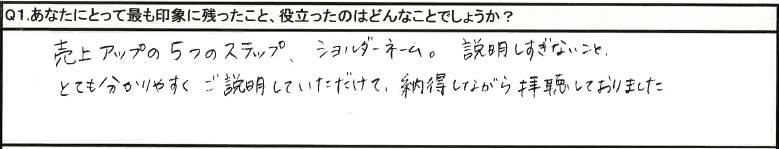 Q1.あなたにとって最も印象に残ったこと、役立ったのはどんなことでしょうか？
売上アップの5つのステップ、ショルダーネーム。説明しすぎないこと、
とても分かりやすくご説明していただけて、納得しながら拝聴しておりました